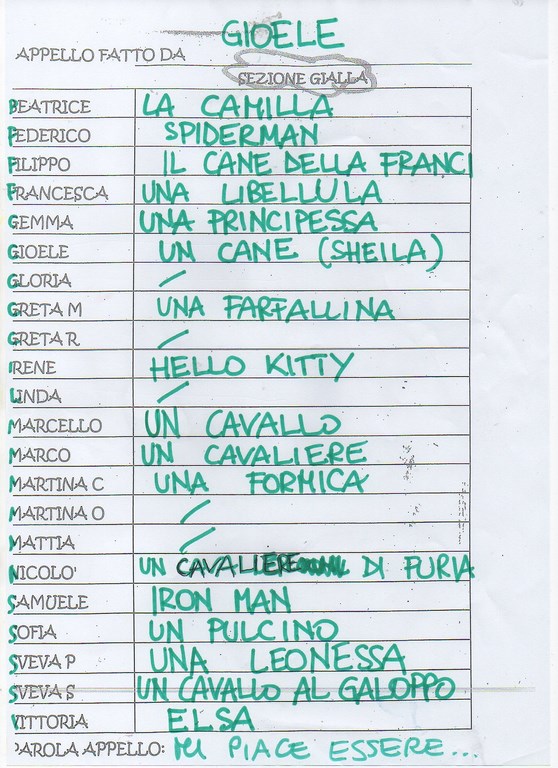 GIOELE
APPELLO FATTO DA
SEZIONE GIALLA
BEATRICE LA CAMILLA
FEDERICO SPIDERMAN
FILIPPO IL CANE DELLA FRANCI
FRANCESCA UNA LIBELLULA
GEMMA UNA PRINCIPESSA
GIOELE UN CANE (SHEILA)
GLORIA /
GRETA M UNA FARFALLINA
GRETA R /
IRENE HELLO KITTY
LINDA /
MARCELLO UN CAVALLO
MARCO UN CAVALIERE
MARTINA C UNA FORMICA
MARTINA O /
MATTIA /
NICOLO' UN CAVALIERE DI FURIA
SAMUELE IRON MAN
SOFIA UN PULCINO
SVEVA P UNA LEONESSA
SVEVA S UN CAVALLO AL GALOPPO
VITTORIA ELSA
PAROLA APPELLO: MI PIACE ESSERE...